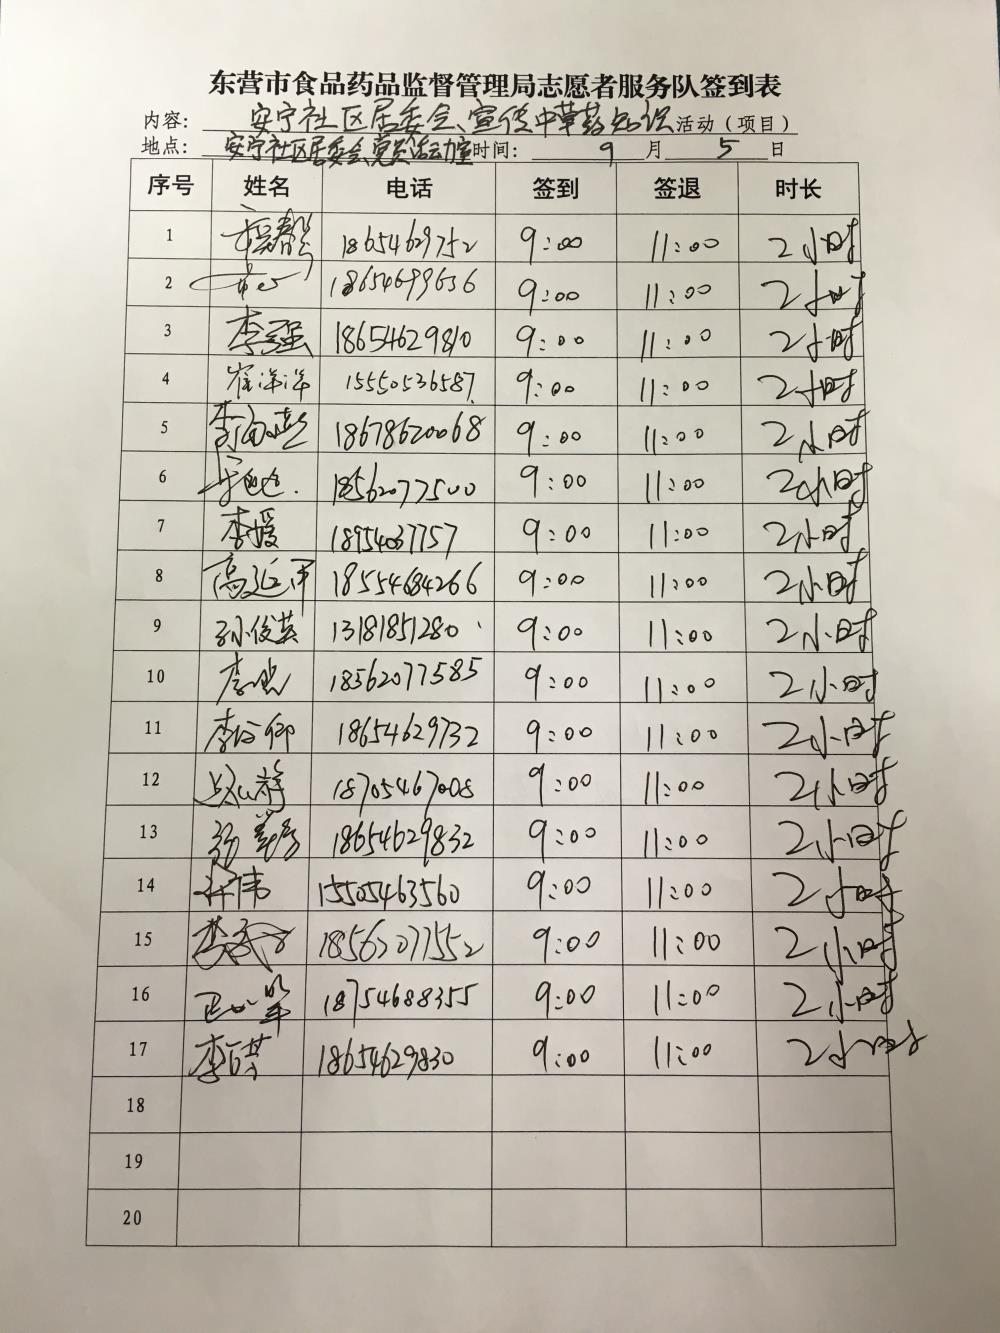 东营市食品药品监督管理局志愿者服务队签到表
内容: 安宁社区居委会、宣传中草药知识 活动（项目）
地点: 安宁社区居委会党员活动室 时间: 9 月 5 日
序号 姓名 电话 签到 签退 时长
1 18654629752 9:00 11:00 2小时
2 18654699636 9:00 11:00 2小时
3 李强 18654629810 9:00 11:00 2小时
4 崔洋洋 15550536587 9:00 11:00 2小时
5 18678620068 9:00 11:00 2小时
6 18562077500 9:00 11:00 2小时
7 李媛 18954037757 9:00 11:00 2小时
8 高延军 18554684266 9:00 11:00 2小时
9 孙俊英 13181851280 9:00 11:00 2小时
10 18562077585 9:00 11:00 2小时
11 18654629732 9:00 11:00 2小时
12 18705467008 9:00 11:00 2小时
13 18654629832 9:00 11:00 2小时
14 15505463560 9:00 11:00 2小时
15 18562077552 9:00 11:00 2小时
16 18754688355 9:00 11:00 2小时
17 18654629830 9:00 11:00 2小时
18
19
20